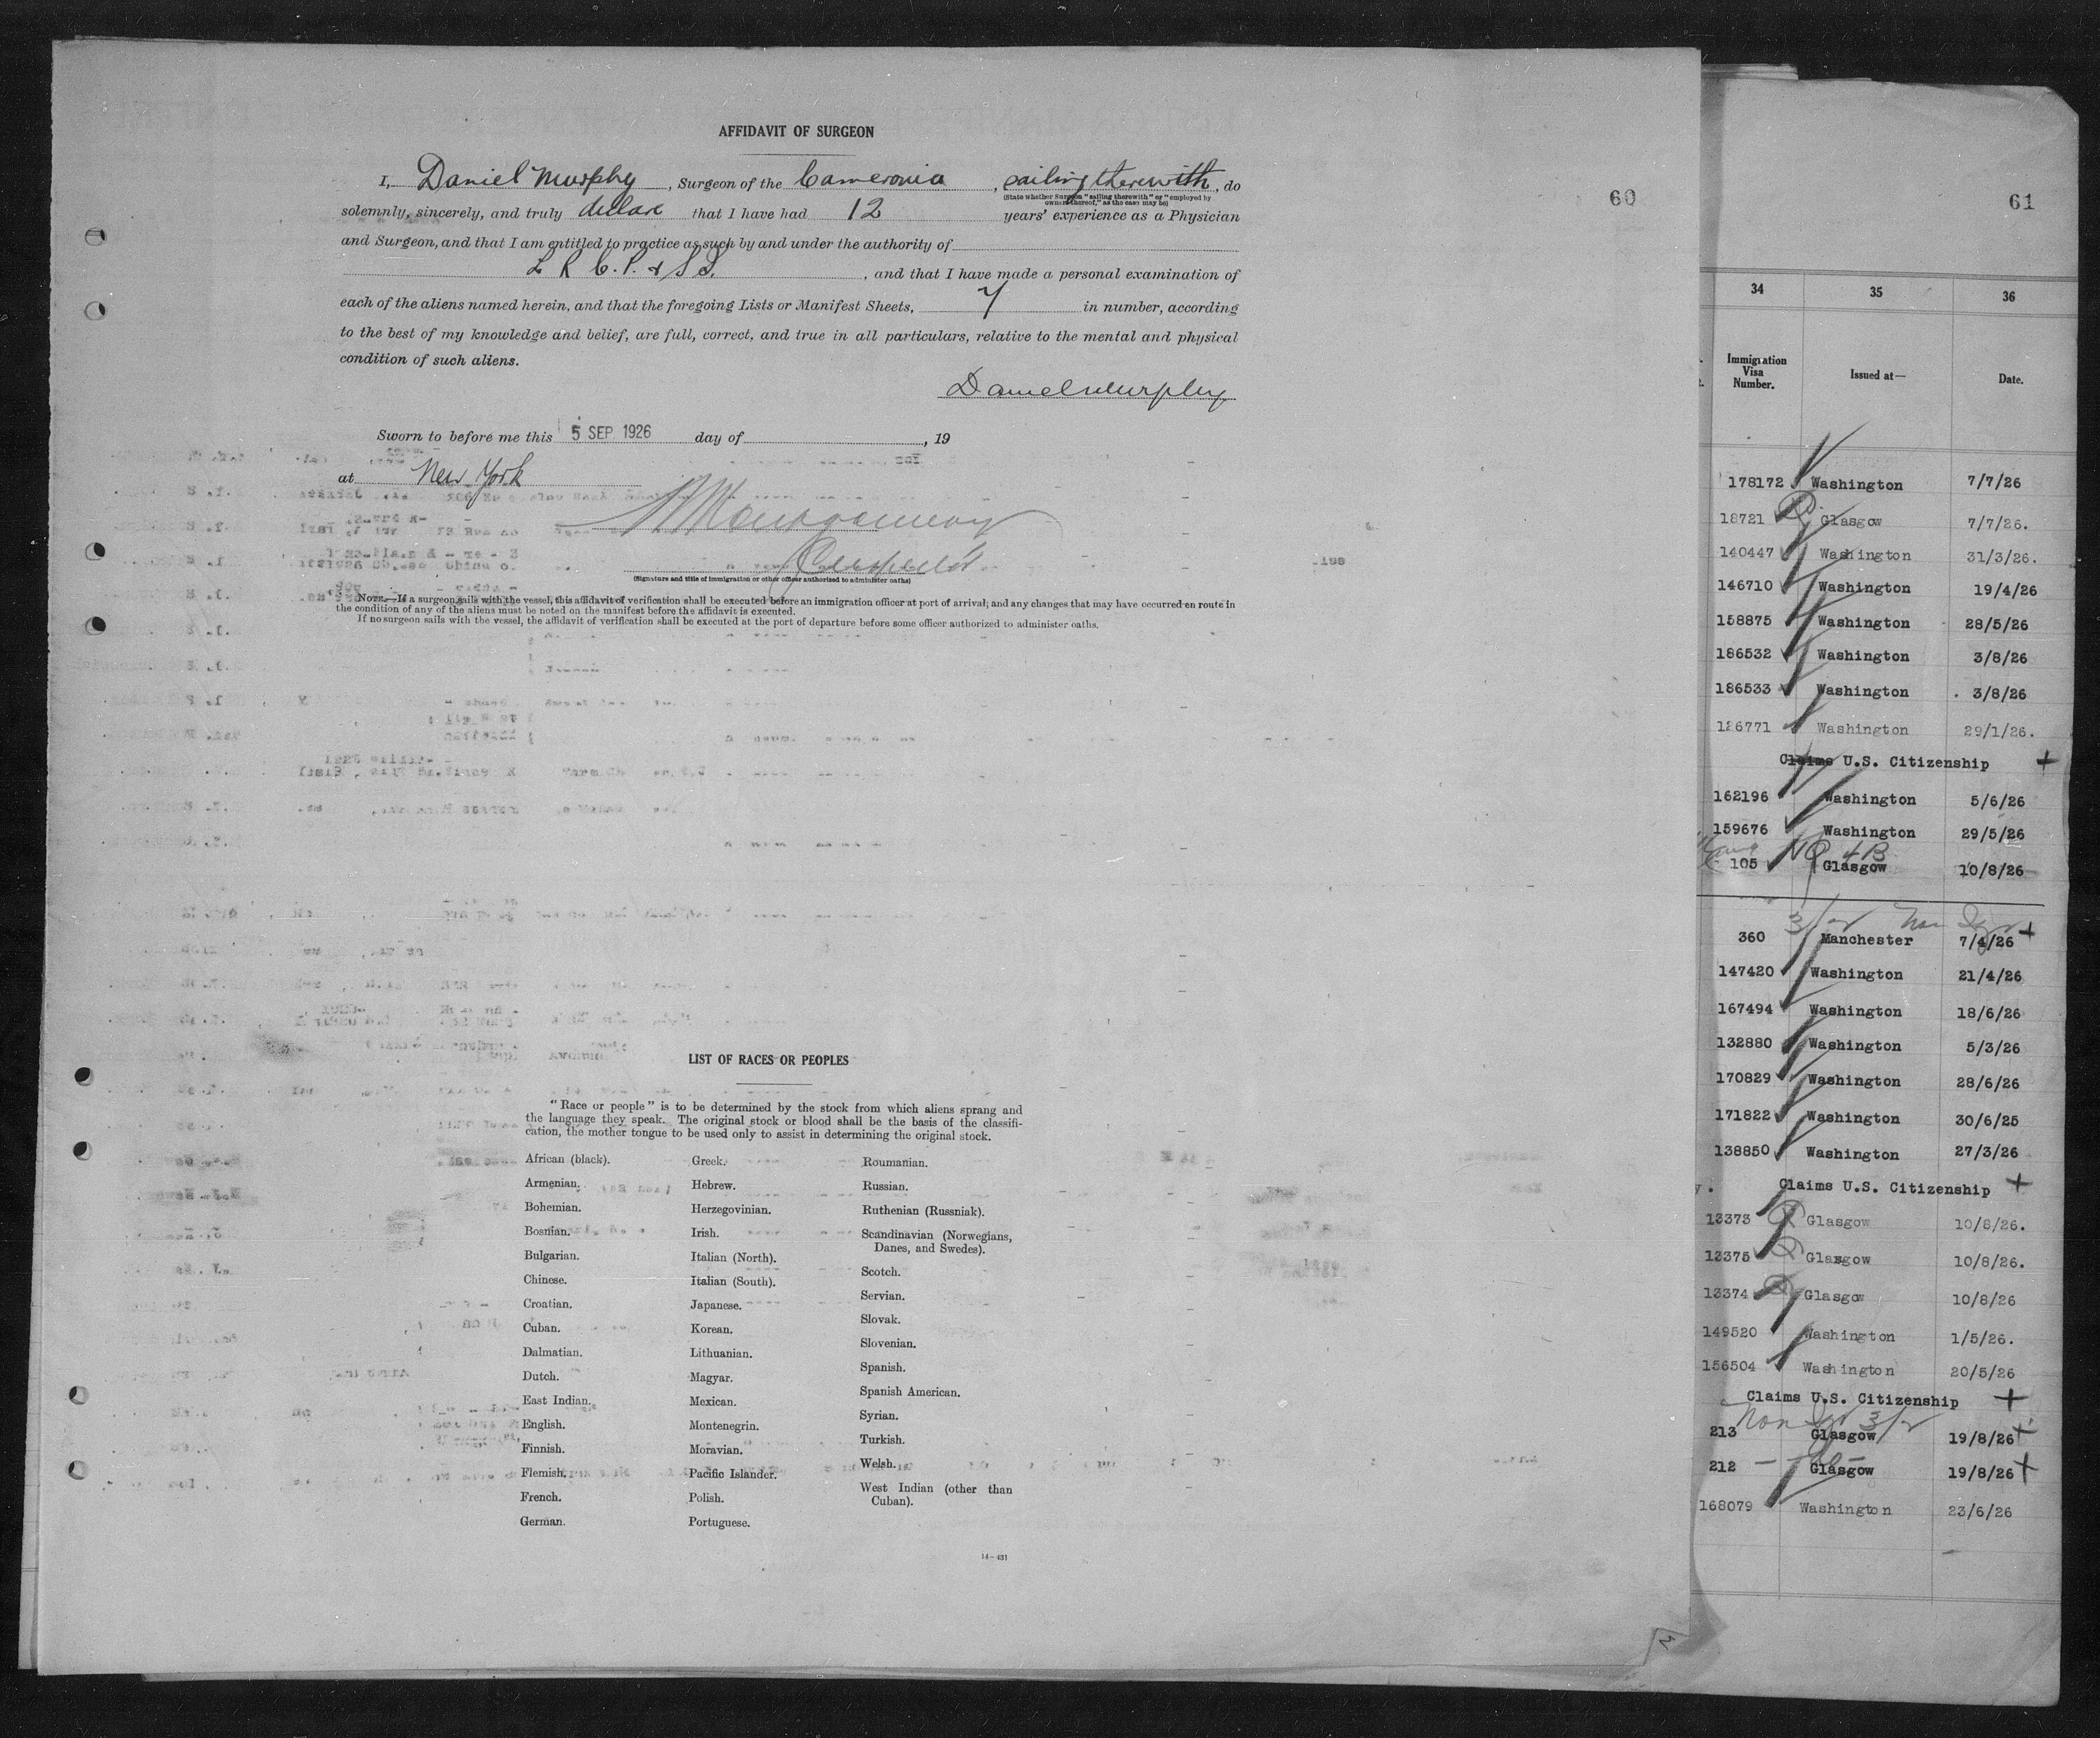 AFFIDAVIT OF SURGEON
I, Daniel Murphy, Surgeon of the Cameronia, sailing therewith, do
(State whether Surgeon "sailing therewith" or "employed by
owners thereof," as the case may be)
solemnly, sincerely, and truly declare that I have had 12 years' experience as a Physician
and Surgeon, and that I am entitled to practice as such by and under the authority of
L R C. P. & S, and that I have made a personal examination of
each of the aliens named herein, and that the foregoing Lists or Manifest Sheets, 7 in number, according
to the best of my knowledge and belief, are full, correct, and true in all particulars, relative to the mental and physical
condition of such aliens.
Daniel Murphy
Sworn to before me this 5 SEP 1926 day of , 19
at New York
Montgomery
(Signature and title of immigration or other officer authorized to administer oaths)
NOTE.—If a surgeon sails with the vessel, this affidavit of verification shall be executed before an immigration officer at port of arrival; and any changes that may have occurred en route in
the condition of any of the aliens must be noted on the manifest before the affidavit is executed.
If no surgeon sails with the vessel, the affidavit of verification shall be executed at the port of departure before some officer authorized to administer oaths.
60
LIST OF RACES OR PEOPLES
"Race or people" is to be determined by the stock from which aliens sprang and
the language they speak. The original stock or blood shall be the basis of the classifi-
cation, the mother tongue to be used only to assist in determining the original stock.
African (black).
Armenian.
Bohemian.
Bosnian.
Bulgarian.
Chinese.
Croatian.
Cuban.
Dalmatian.
Dutch.
East Indian.
English.
Finnish.
Flemish.
French.
German.
Greek.
Hebrew.
Herzegovinian.
Irish.
Italian (North).
Italian (South).
Japanese.
Korean.
Lithuanian.
Magyar.
Mexican.
Montenegrin.
Moravian.
Pacific Islander.
Polish.
Portuguese.
Roumanian.
Russian.
Ruthenian (Russniak).
Scandinavian (Norwegians,
Danes, and Swedes).
Scotch.
Servian.
Slovak.
Slovenian.
Spanish.
Spanish American.
Syrian.
Turkish.
Welsh.
West Indian (other than
Cuban).
14—431
61
34 35 36
Immigration
Visa
Number.
Issued at—
Date.
178172 Washington 7/7/26
18721 Glasgow 7/7/26.
140447 Washington 31/3/26.
146710 Washington 19/4/26
158875 Washington 28/5/26
186532 Washington 3/8/26
186533 Washington 3/8/26
126771 Washington 29/1/26.
Claims U.S. Citizenship +
162196 Washington 5/6/26
159676 Washington 29/5/26
NQ 4B
105 Glasgow 10/8/26
3/ Non
360 Manchester 7/4/26 +
147420 Washington 21/4/26
167494 Washington 18/6/26
132880 Washington 5/3/26
170829 Washington 28/6/26
171822 Washington 30/6/25
138850 Washington 27/3/26
Claims U.S. Citizenship +
13373 Glasgow 10/8/26.
13375 Glasgow 10/8/26.
13374 Glasgow 10/8/26
149520 Washington 1/5/26.
156504 Washington 20/5/26
Claims U.S. Citizenship +
Non 3/
213 Glasgow 19/8/26 +
212 - do - Glasgow 19/8/26 +
168079 Washington 23/6/26